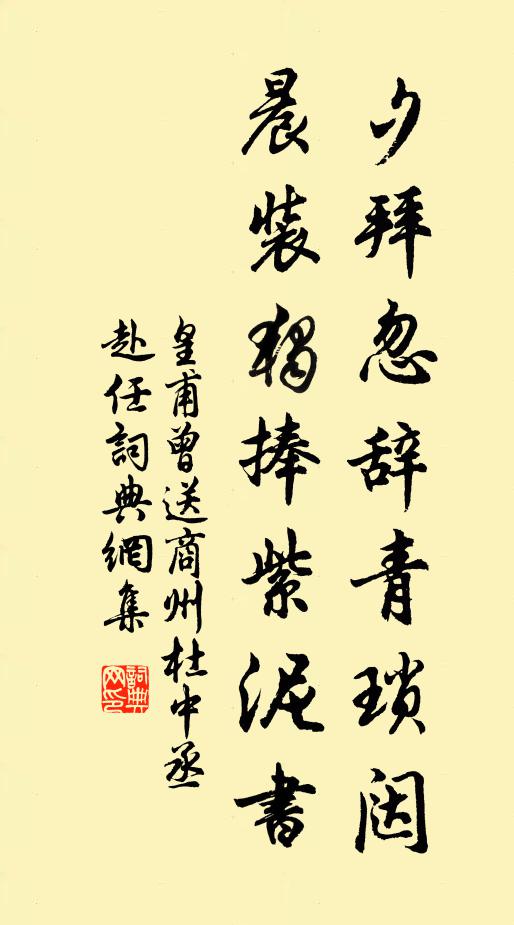 夕拜忽辞青琐闼
晨装獨捧紫泥書
皇甫曾送商州杜中丞
赴任詞典網集
詞典网印